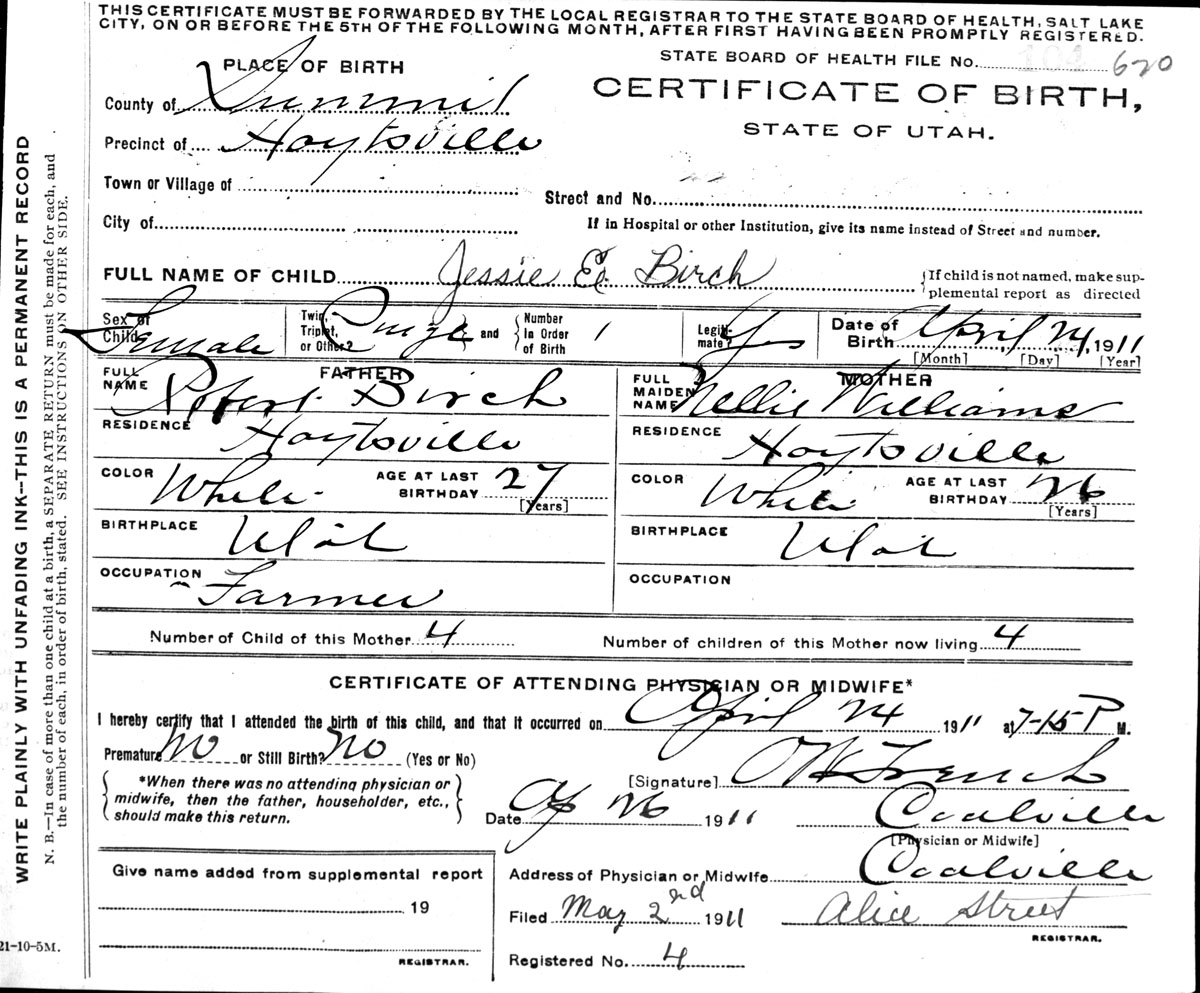 THIS CERTIFICATE MUST BE FORWARDED BY THE LOCAL REGISTRAR TO THE STATE BOARD OF HEALTH, SALT LAKE
CITY, ON OR BEFORE THE 5TH OF THE FOLLOWING MONTH, AFTER FIRST HAVING BEEN PROMPTLY REGISTERED.
STATE BOARD OF HEALTH FILE No. 620
PLACE OF BIRTH
CERTIFICATE OF BIRTH,
STATE OF UTAH.
County of Summit
Precinct of Hoytsville
Town or Village of
Street and No.
City of
If in Hospital or other Institution, give its name instead of Street and number.
FULL NAME OF CHILD Jessie E. Birch
{If child is not named, make sup-
plemental report as directed
Sex of Child Female
Twin, Triplet, or Other? and {Number In Order of Birth 1
Legiti-mate? Yes
Date of Birth April 24, 1911
[Month] [Day] [Year]
FATHER
FULL NAME Robert Birch
RESIDENCE Hoytsville
COLOR White AGE AT LAST BIRTHDAY 27
[Years]
BIRTHPLACE Utah
OCCUPATION Farmer
MOTHER
FULL MAIDEN NAME Nellie Williams
RESIDENCE Hoytsville
COLOR White AGE AT LAST BIRTHDAY 26
[Years]
BIRTHPLACE Utah
OCCUPATION
Number of Child of this Mother 4 Number of children of this Mother now living 4
CERTIFICATE OF ATTENDING PHYSICIAN OR MIDWIFE*
I hereby certify that I attended the birth of this child, and that it occurred on April 24 1911 at 7-15-P M.
Premature No or Still Birth? No (Yes or No)
{*When there was no attending physician or
midwife, then the father, householder, etc.,
should make this return.}
[Signature] French
Date Ap 26 1911 Coalville
[Physician or Midwife]
Give name added from supplemental report
19
REGISTRAR.
Address of Physician or Midwife Coalville
Filed May 2nd 1911 Alice Street
REGISTRAR.
Registered No. 4
WRITE PLAINLY WITH UNFADING INK—THIS IS A PERMANENT RECORD
N. B.—In case of more than one child at a birth, a SEPARATE RETURN must be made for each, and
the number of each, in order of birth, stated. SEE INSTRUCTIONS ON OTHER SIDE.
21-10-5M.